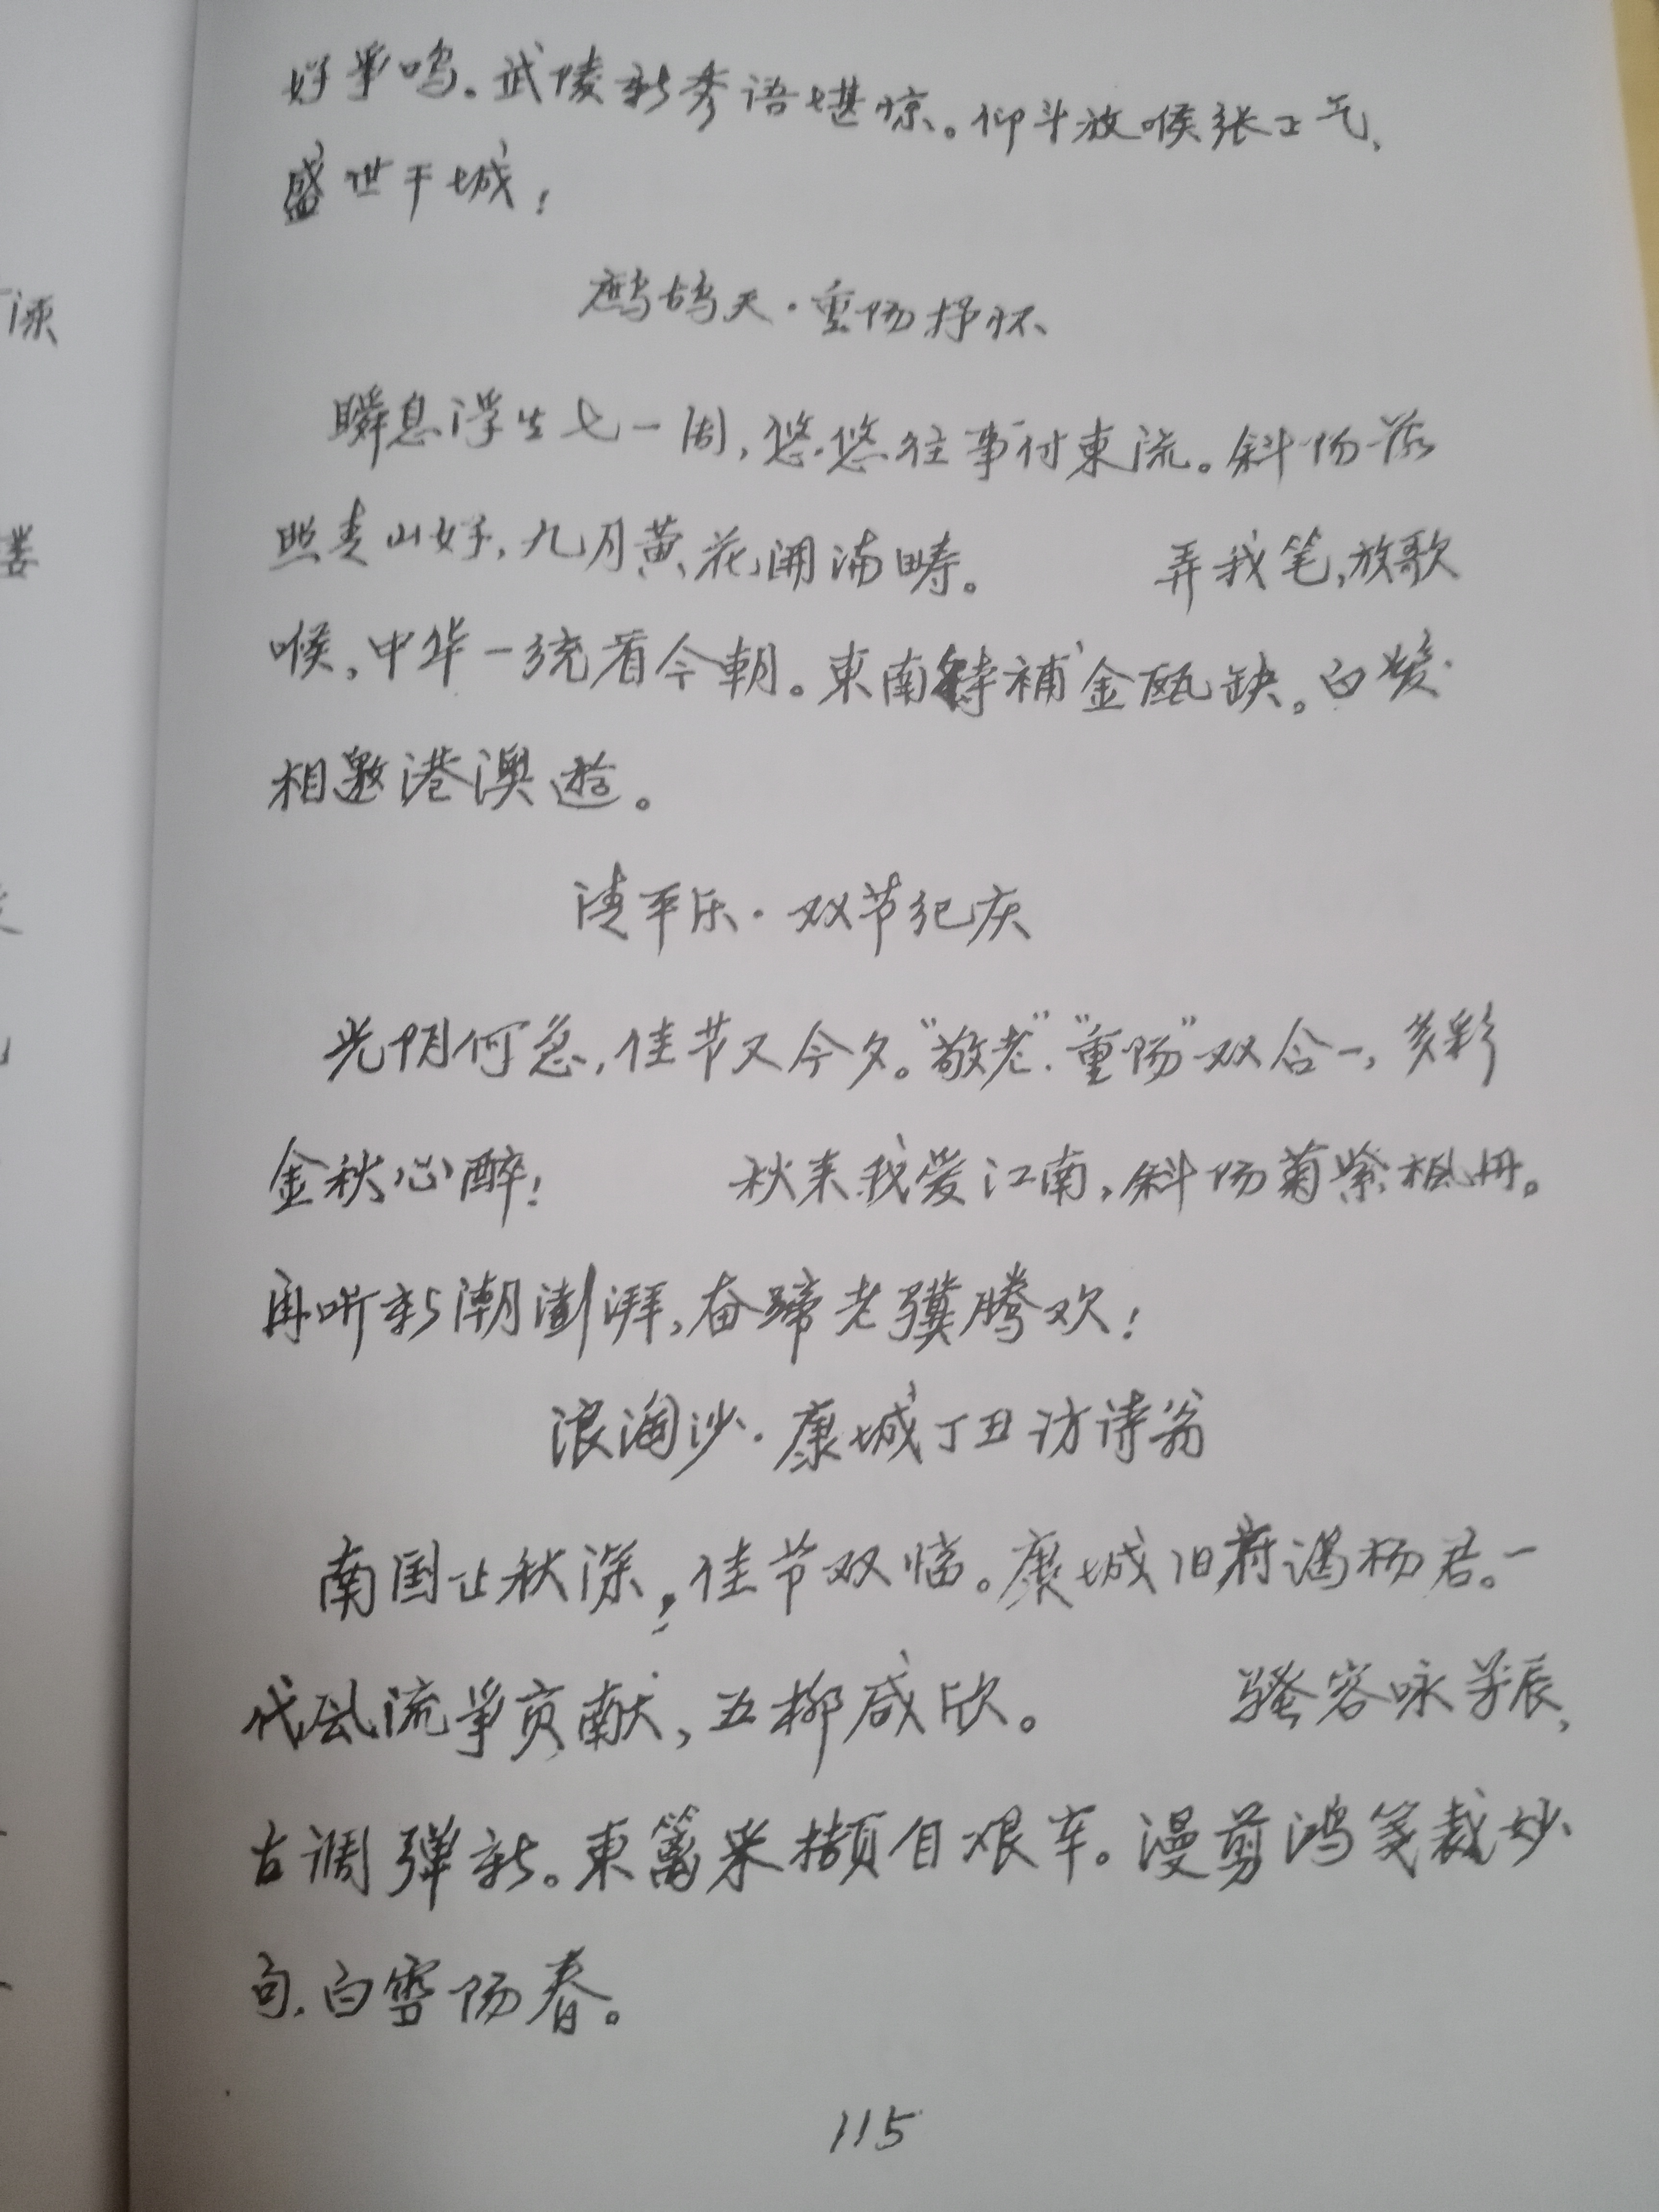 好争鸣。武陵新秀语堪惊。仰斗放喉张士气,
盛世干城!
鹧鸪天·重阳抒怀
瞬息浮生七一周,悠悠往事付東流。斜阳落
照青山好,九月黄花開满畴。 弄我笔,放歌
喉,中华一统看今朝。東南待補金瓯缺。白发
相邀港澳遊。
清平乐·双节纪庆
光阴何急,佳节又今夕。“敬老”.“重阳”双合一,多彩
金秋心醉! 秋来我爱江南,斜阳菊紫枫丹。
再听新潮澎湃,奋蹄老骥腾欢!
浪淘沙·康城丁丑访诗翁
南国正秋深,佳节双临。康城旧府谒杨君。一
代风流争贡献,五柳咸欣。 骚客咏芳辰,
古调弹新。東篱采撷自艰辛。漫剪鸿笺裁妙
句.白雪阳春。
115